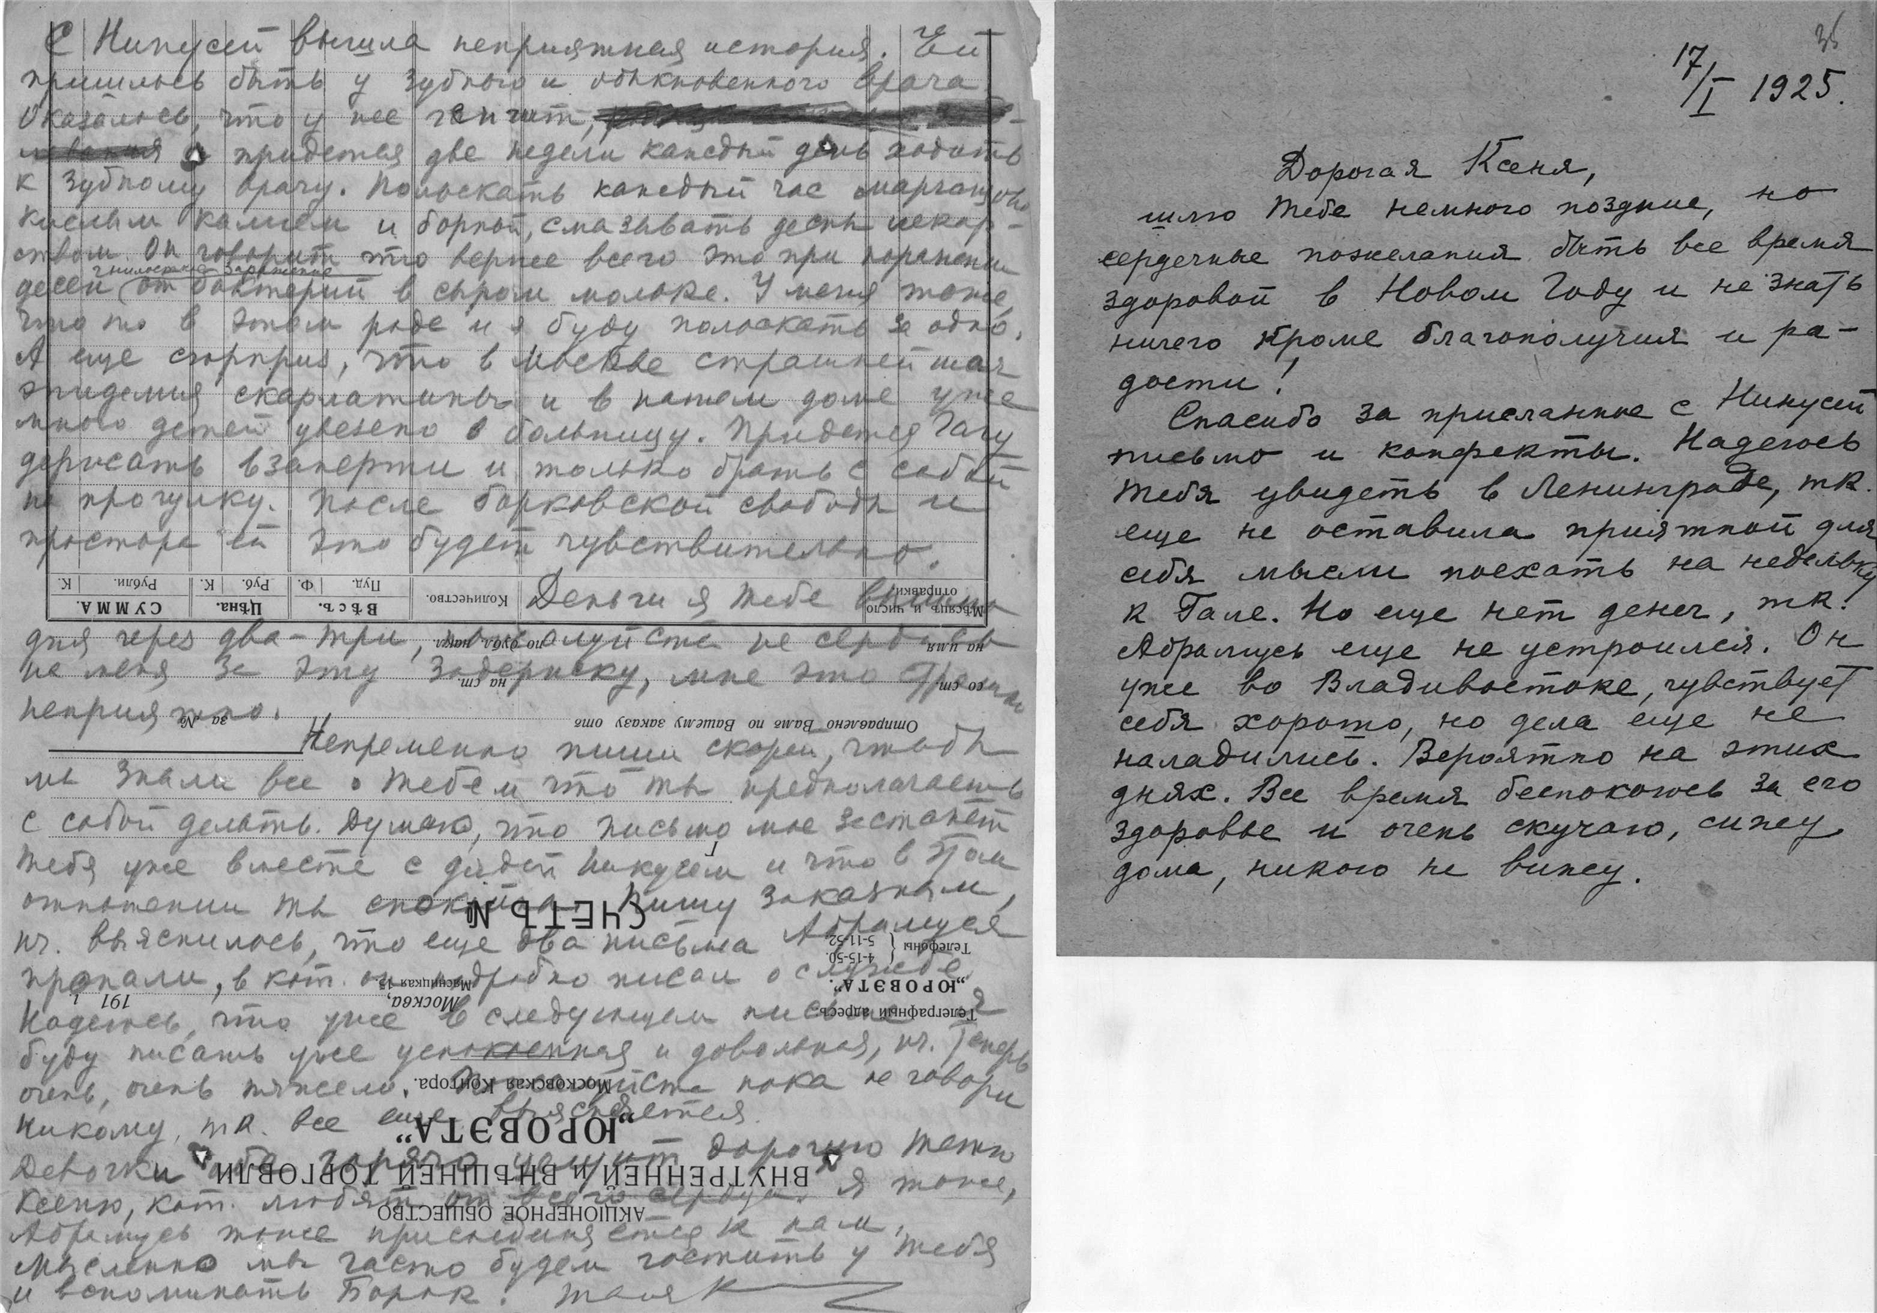 С Нинусей вышла неприятная история. Ей
пришлось быть у зубного и обыкновенного врача.
Оказалось, что у нее гингит,
придется две недели каждый день ходить
к зубному врачу. Полоскать каждый час марганцово
кислым калием и борной, смазывать десны лекар-
ством. Он говорит что вернее всего это при поранении
гнилостное заражение
десен от бактерий в сыром молоке. У меня тоже
что то в этом роде и я буду полоскать за одно.
А еще сюрприз, что в Москве страшнейшая
эпидемия скарлатины и в нашем доме уже
много детей увезено в больницу. Придется Гагу
держать взаперти и только брать с собой
на прогулку. После борковской свободы и
простора ей это будет чувствительно.
Деньги я тебе вышлю
дня через два-три, пожалуйста не сердись
на меня за эту задержку, мне это
неприятно.
Непременно пиши скорей, чтобы
мы знали все о тебе и что ты предполагаешь
с собой делать. Думаю, что письмо мое застанет
тебя уже вместе с дядей Никусем и что в этом
отношении ты спокойна. Пишу заказным,
пч. выяснилось, что еще два письма Абрамуся
пропали, в кот. он подробно писал о службе.
Надеюсь, что уже в следующем письме я
буду писать уже успокоенная и довольная, пч. теперь
очень, очень тяжело. Пожалуйста пока не говори
никому, тк. все еще выясняется.
Девочки обе горячо целуют дорогую тетю
Ксеню, кот. любят от всего сердца. Я тоже,
Абрамусь тоже присоединяется к нам.
Мысленно мы часто будем гостить у тебя
и вспоминать Борок. Таля К
Мѣсяцъ и число отправки.
Количество.
Вѣсъ.
Пуд. Ф.
Цѣна.
Руб. К.
СУММА.
Рубли. К.
на имя
по дубл. накл.
со ст.
на ст.
Отправлено Вамъ по Вашему заказу отъ
за №
СЧЕТЪ №
Телефоны { 4-15-50. 5-11-52.
Телеграфный адресъ:
„ЮРОВЭТА“.
Москва, 191 г.
Мясницкая 13
Московская Контора.
„ЮРОВЭТА“
ВНУТРЕННЕЙ и ВНѢШНЕЙ ТОРГОВЛИ
АКЦИОНЕРНОЕ ОБЩЕСТВО
17/I 1925.
Дорогая Ксеня,
шлю тебе немного поздние, но
сердечные пожелания быть все время
здоровой в Новом Году и не знать
ничего кроме благополучия и ра-
дости!
Спасибо за присланные с Нинусей
письмо и конфекты. Надеюсь
тебя увидеть в Ленинграде, тк.
еще не оставила приятной для
себя мысли поехать на недельку
к Гале. Но еще нет денег, тк.
Абрамусь еще не устроился. Он
уже во Владивостоке, чувствует
себя хорошо, но дела еще не
наладились. Вероятно на этих
днях. Все время беспокоюсь за его
здоровье и очень скучаю, сижу
дома, никого не вижу.